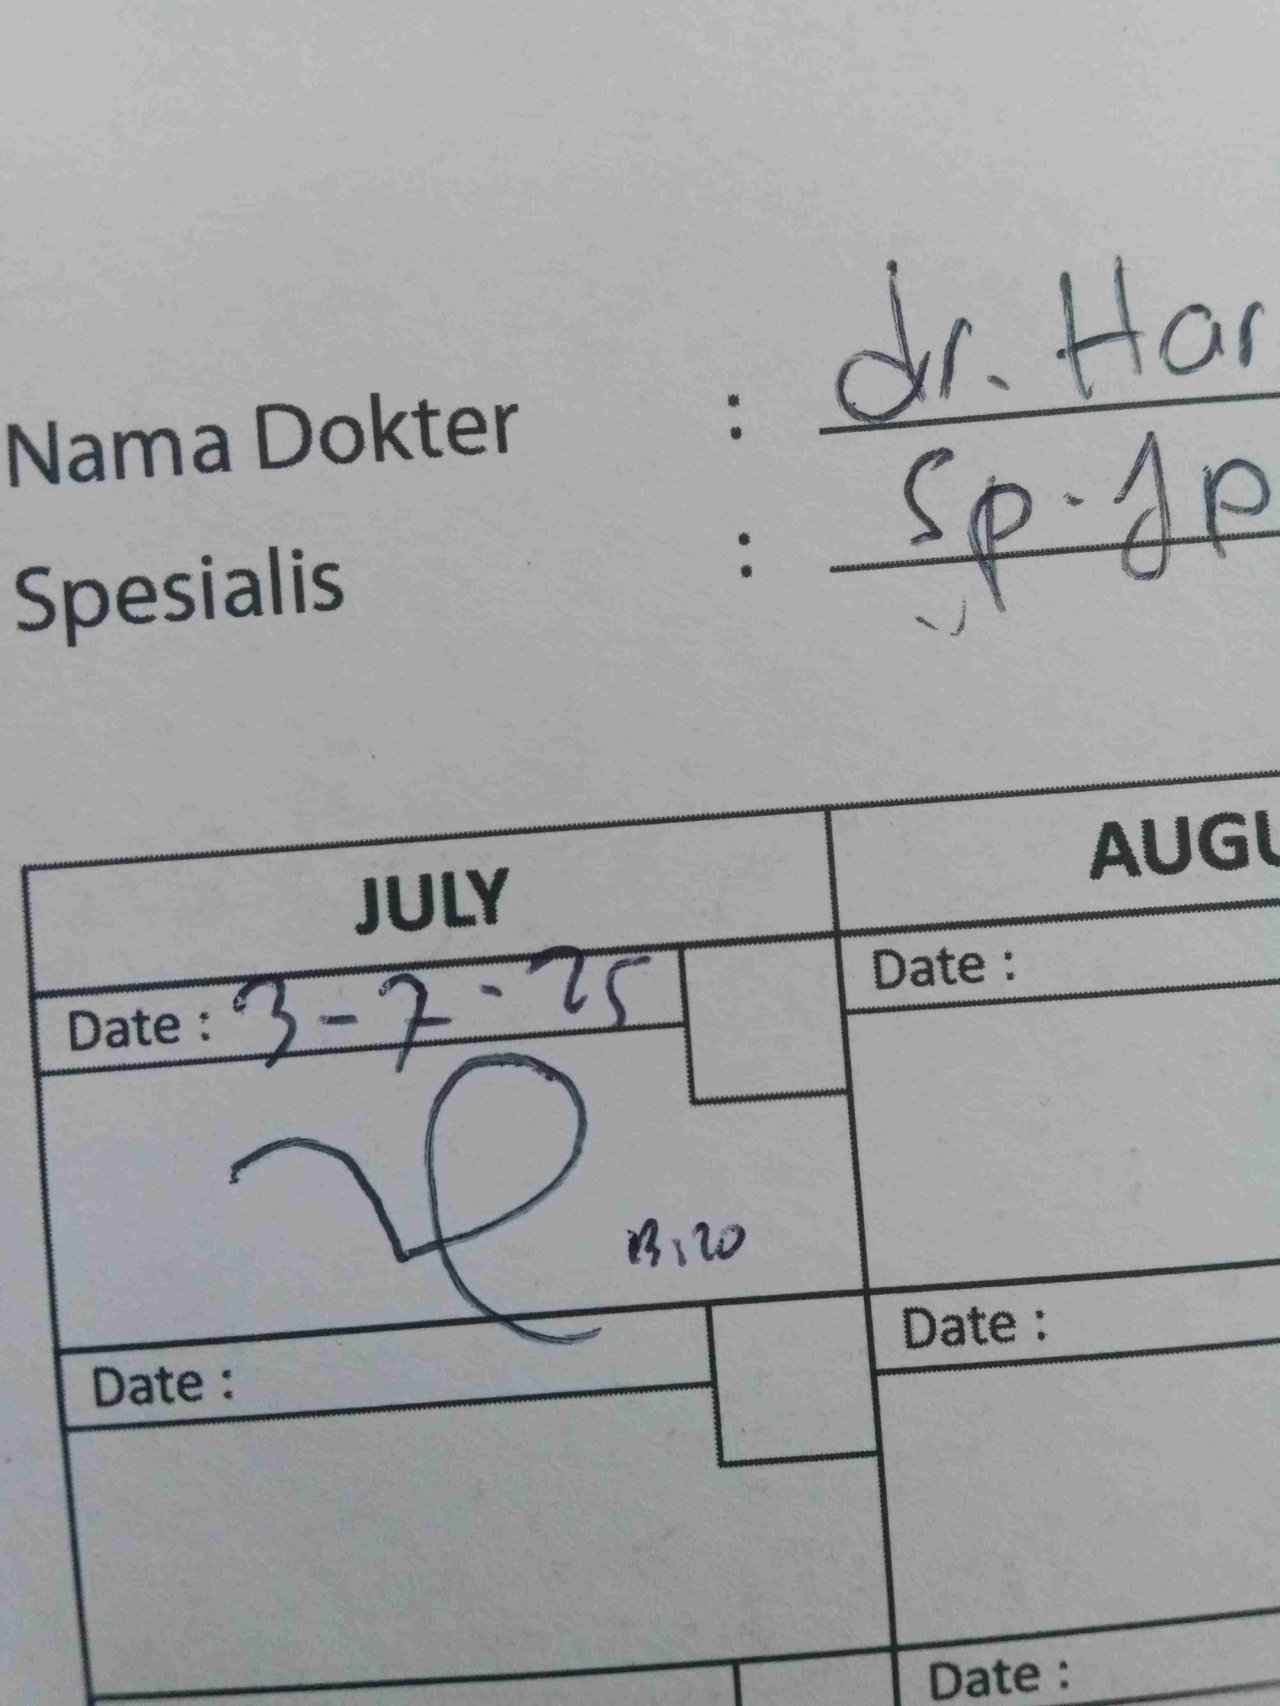 Nama Dokter : dr. Har
Spesialis : Sp. Jp
JULY AUGU
Date : 3-7-25 Date :
13:20
Date : Date :
Date :